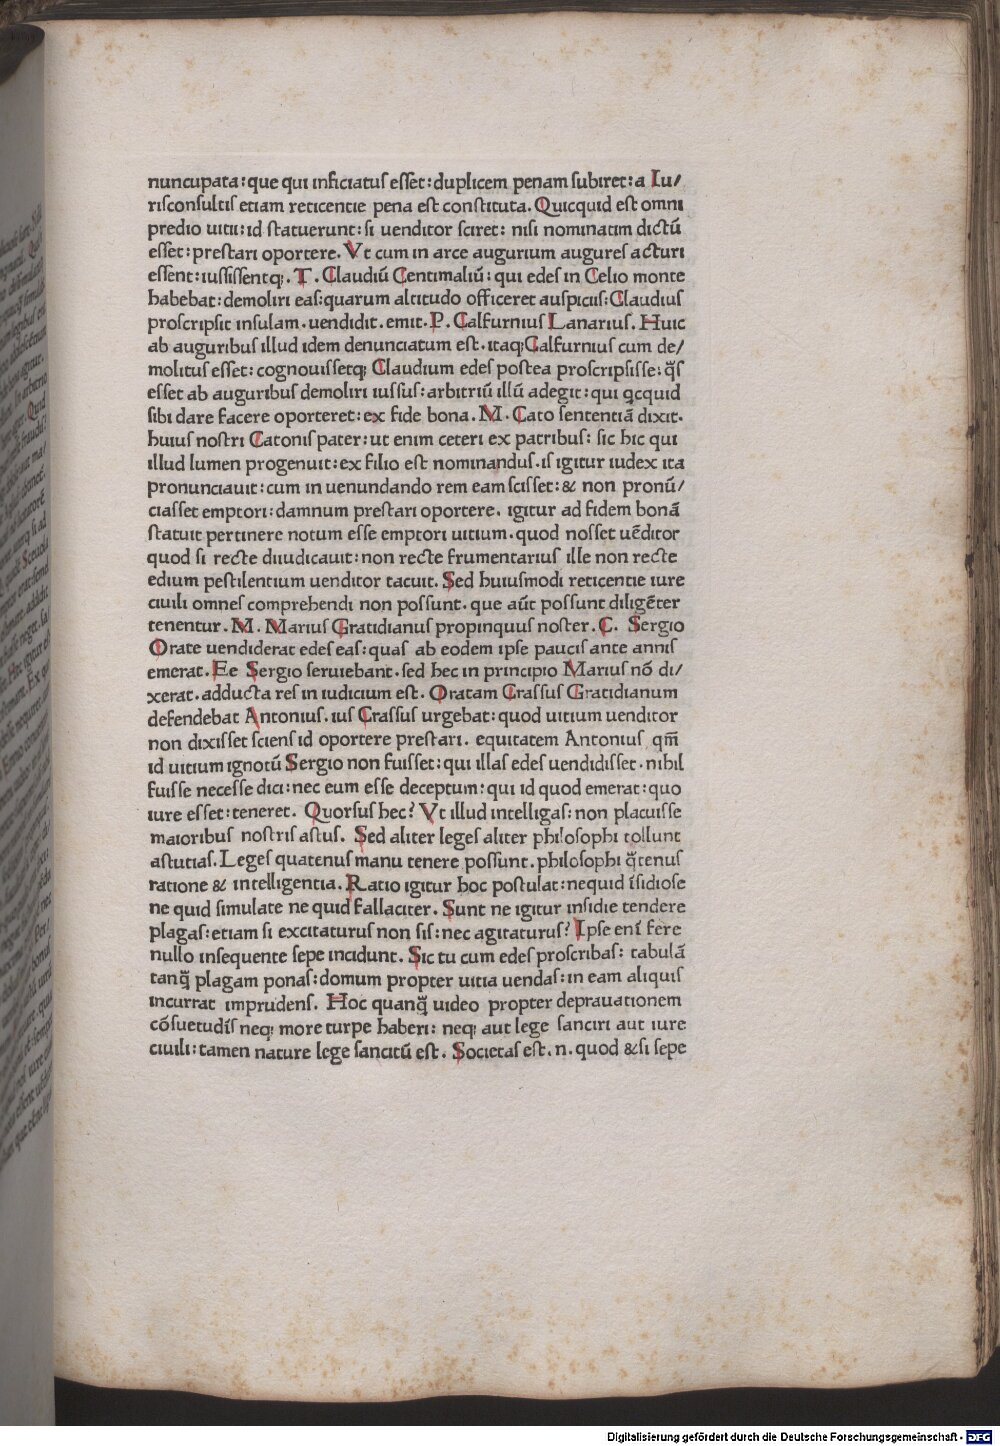 nuncupata: que qui inficiatuſ eſſet: duplicem penam ſubiret: a Iu/
riſconſultiſ etiam reticentie pena eſt conſtituta. Quicquid eſt omni
predio uitii: id ſtatuerunt: ſi uenditor ſciret: niſi nominatim dictū
eſſet: preſtari oportere. Vt cum in arce augurium augureſ acturi
eſſent: iuſſiſſentq;. T. Claudiū Centimaliū: qui edeſ in Celio monte
habebat: demoliri eaſ: quarum altitudo officeret auſpiciiſ: Claudiuſ
proſcripſit inſulam. uendidit. emit. P. Calfurniuſ Lanariuſ. Huic
ab auguribuſ illud idem denunciatum eſt. itaq; Calfurniuſ cum de/
molituſ eſſet: cognouiſſetq; Claudium edeſ poſtea proſcripſiſſe: q̄ſ
eſſet ab auguribuſ demoliri iuſſuſ: arbitriū illū adegit: qui qcquid
ſibi dare facere oporteret: ex fide bona. M. Cato ſententiā dixit.
huiuſ noſtri Catoniſ pater: ut enim ceteri ex patribuſ: ſic hic qui
illud lumen progenuit: ex filio eſt nominanduſ. iſ igitur iudex ita
pronunciauit: cum in uenundando rem eam ſciſſet: & non pronū/
ciaſſet emptori: damnum preſtari oportere. igitur ad fidem bonā
ſtatuit pertinere notum eſſe emptori uitium. quod noſſet uēditor
quod ſi recte diiudicauit: non recte frumentariuſ ille non recte
edium peſtilentium uenditor tacuit. Sed huiuſmodi reticentie iure
ciuili omneſ comprehendi non poſſunt. que aūt poſſunt diligēter
tenentur. M. Mariuſ Gratidianuſ propinquuſ noſter. C. Sergio
Orate uendiderat edeſ eaſ: quaſ ab eodem ipſe pauciſ ante anniſ
emerat. Ee Sergio ſeruiebant. ſed hec in principio Mariuſ nō di/
xerat. adducta reſ in iudicium eſt. Oratam Craſſuſ Gratidianum
defendebat Antoniuſ. iuſ Craſſuſ urgebat: quod uitium uenditor
non dixiſſet ſcienſ id oportere preſtari. equitatem Antoniuſ qm̄
id uitium ignotū Sergio non fuiſſet: qui illaſ edeſ uendidiſſet. nihil
fuiſſe neceſſe dici: nec eum eſſe deceptum: qui id quod emerat: quo
iure eſſet: teneret. Quorſuſ hec? Vt illud intelligaſ: non placuiſſe
maioribuſ noſtriſ aſtuſ. Sed aliter legeſ aliter philoſophi tollunt
aſtutiaſ. Legeſ quatenuſ manu tenere poſſunt. philoſophi q̄tenuſ
ratione & intelligentia. Ratio igitur hoc poſtulat: nequid īſidioſe
ne quid ſimulate ne quid fallaciter. Sunt ne igitur inſidie tendere
plagaſ: etiam ſi excitaturuſ non ſiſ: nec agitaturuſ? Ipſe eni fere
nullo inſequente ſepe incidunt. Sic tu cum edeſ proſcribaſ: tabulā
tanq̄ plagam ponaſ: domum propter uitia uendaſ: in eam aliquiſ
incurrat imprudenſ. Hoc quanq̄ uideo propter deprauationem
cōſuetudiſ neq; more turpe haberi: neq; aut lege ſanciri aut iure
ciuili: tamen nature lege ſancitū eſt. Societaſ eſt. n. quod &ſi ſepe
Digitalisierung gefördert durch die Deutsche Forschungsgemeinschaft - DFG